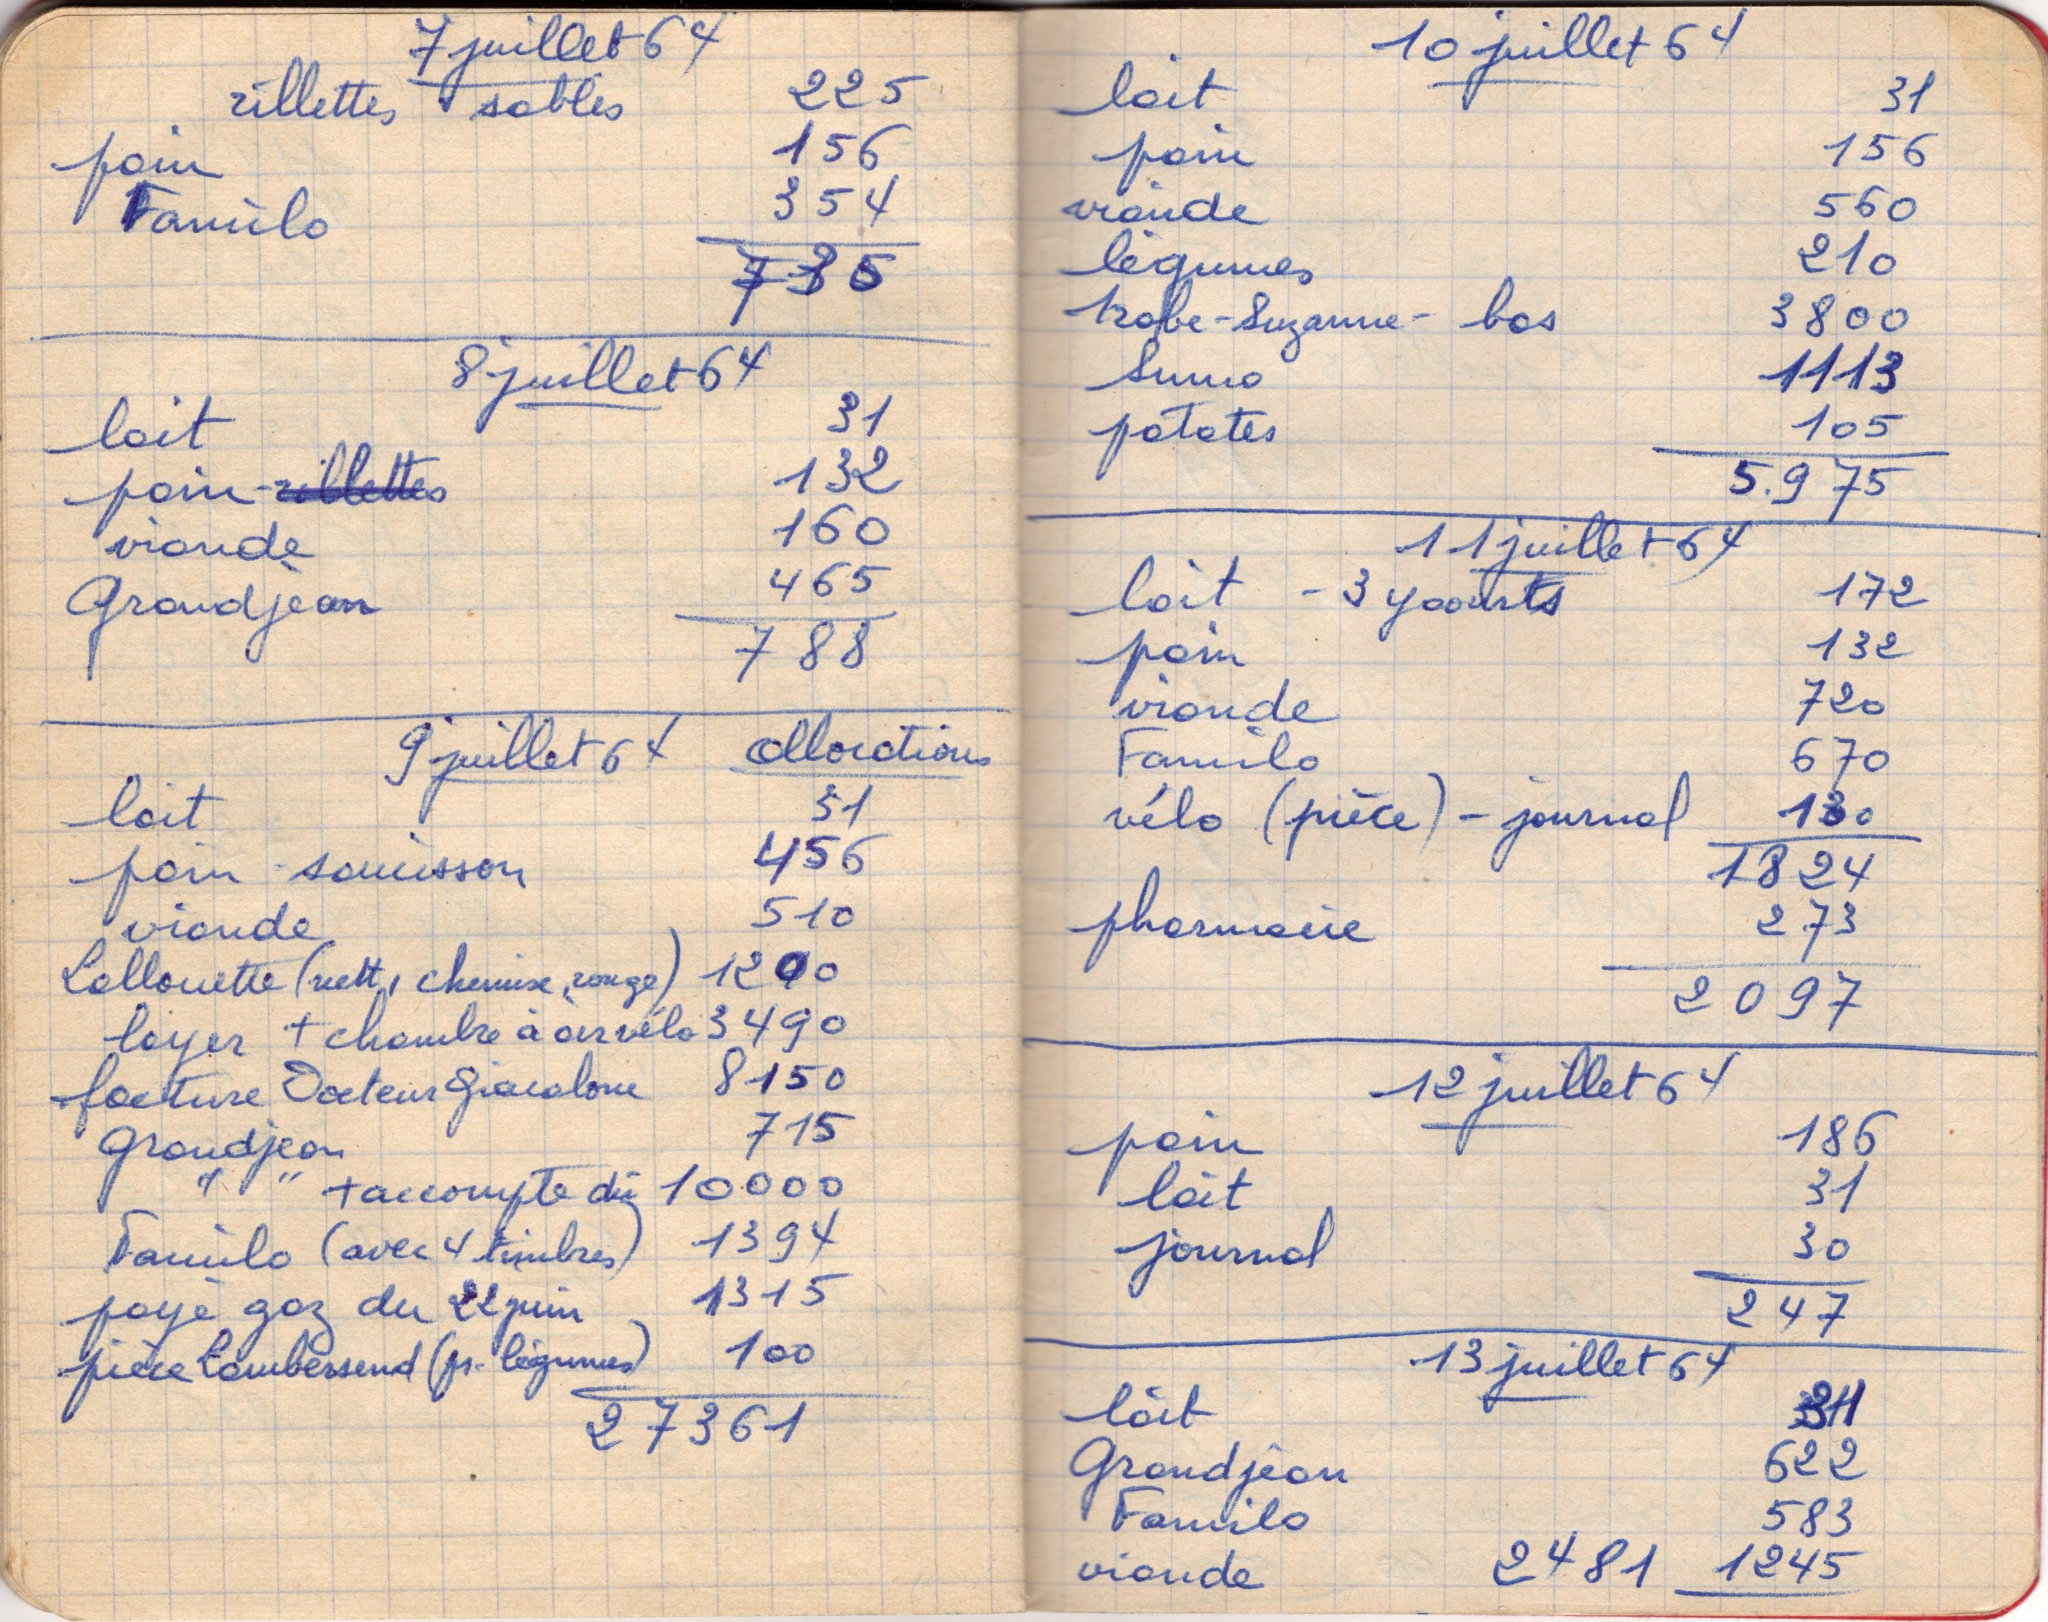 7 juillet 64
rillettes sablés 225
pain 156
Familo 354
735
8 juillet 64
lait 31
pain - rillettes 132
viande 160
Grandjean 465
788
9 juillet 64 allocations
lait 31
pain - saucisson 456
viande 510
Lallouette (nett, chemise, rouge) 1200
loyer + chambre à air vélo 3490
facture Docteur Giacalone 8150
Grandjean 715
" " + accompte dû 10000
Familo (avec 4 timbres) 1394
payé gaz du 22 juin 1315
pièce Lambersend (pr. légumes) 100
27361
10 juillet 64
lait 31
pain 156
viande 560
légumes 210
robe - Suzanne - bas 3800
Suma 1113
patates 105
5.975
11 juillet 64
lait - 3 yaourts 172
pain 132
viande 720
Familo 670
vélo (pièce) - journal 130
1824
pharmacie 273
2097
12 juillet 64
pain 186
lait 31
journal 30
247
13 juillet 64
lait 31
Grandjean 622
Familo 583
viande 2481 1245